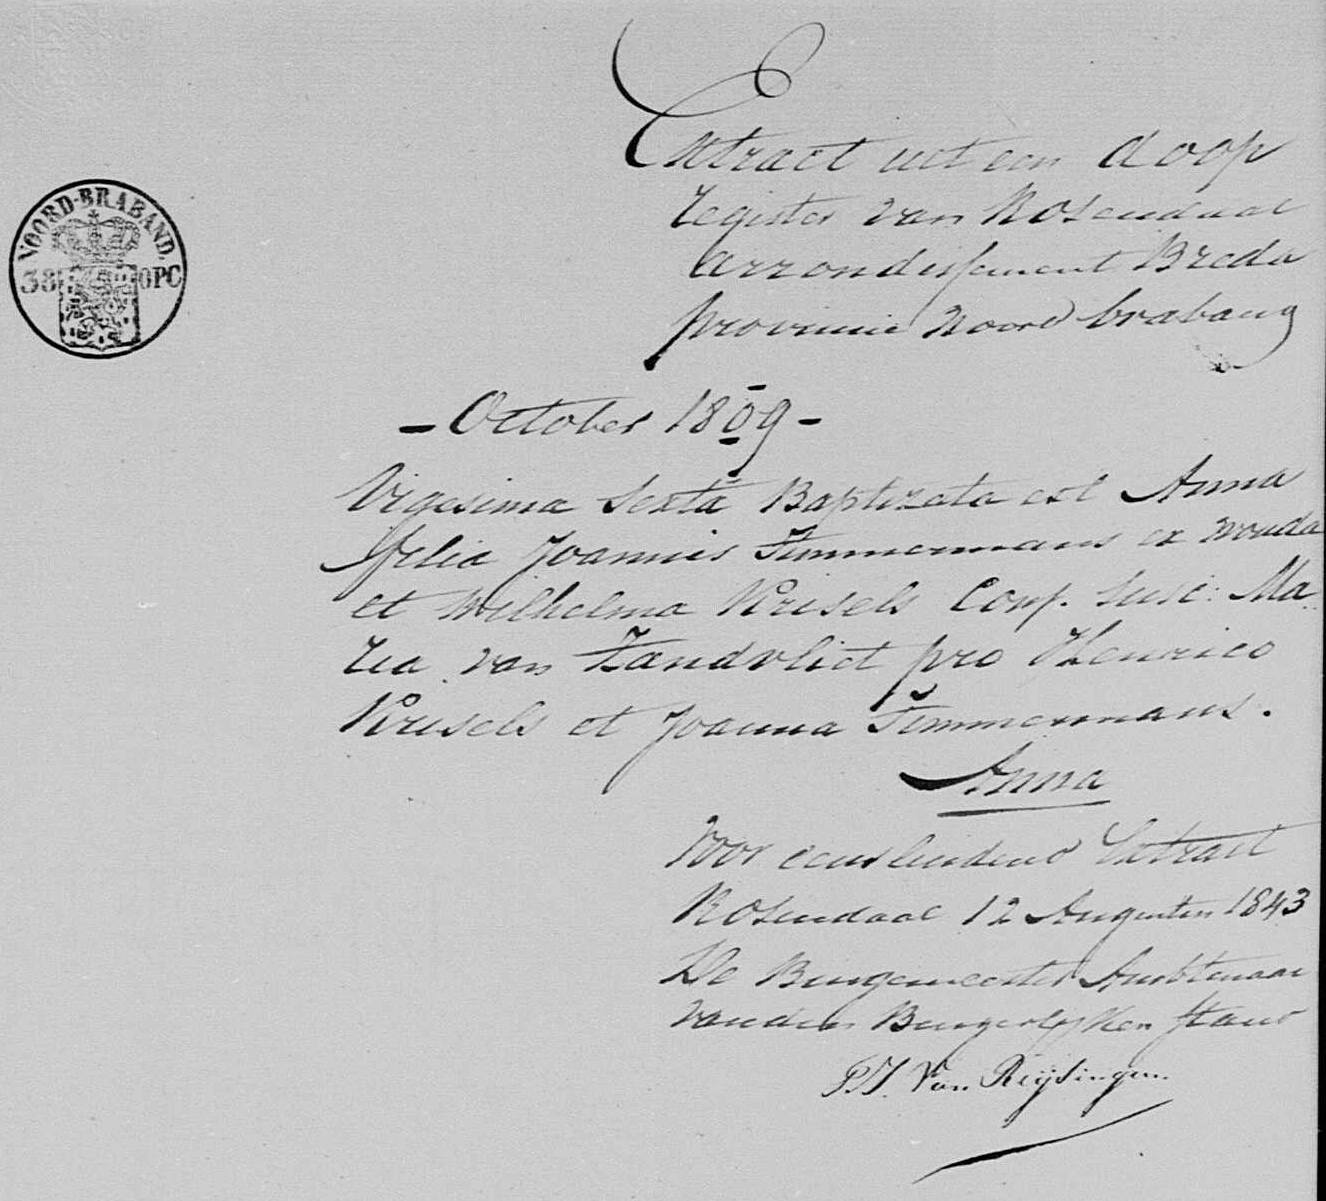 Extract uit een doop
register van Rosendaal
arrondissement Breda
provincie Noord braband
NOORD-BRABAND.
38 OPC
- October 1809 -
Vigesima Sexta Baptizata est Anna
filia Joannis Timmermans ex wouda
et Wilhelma Krisels Conj. Susc: Ma-
ria van Zandvliet pro Henrico
Krisels et Joanna Timmermans.
Anna
Voor eensluidend Extract
Rosendaal 12 Augustus 1843
De Burgemeester Ambtenaar
van den Burgerlijken Stand
P.J. Van Reijsingen